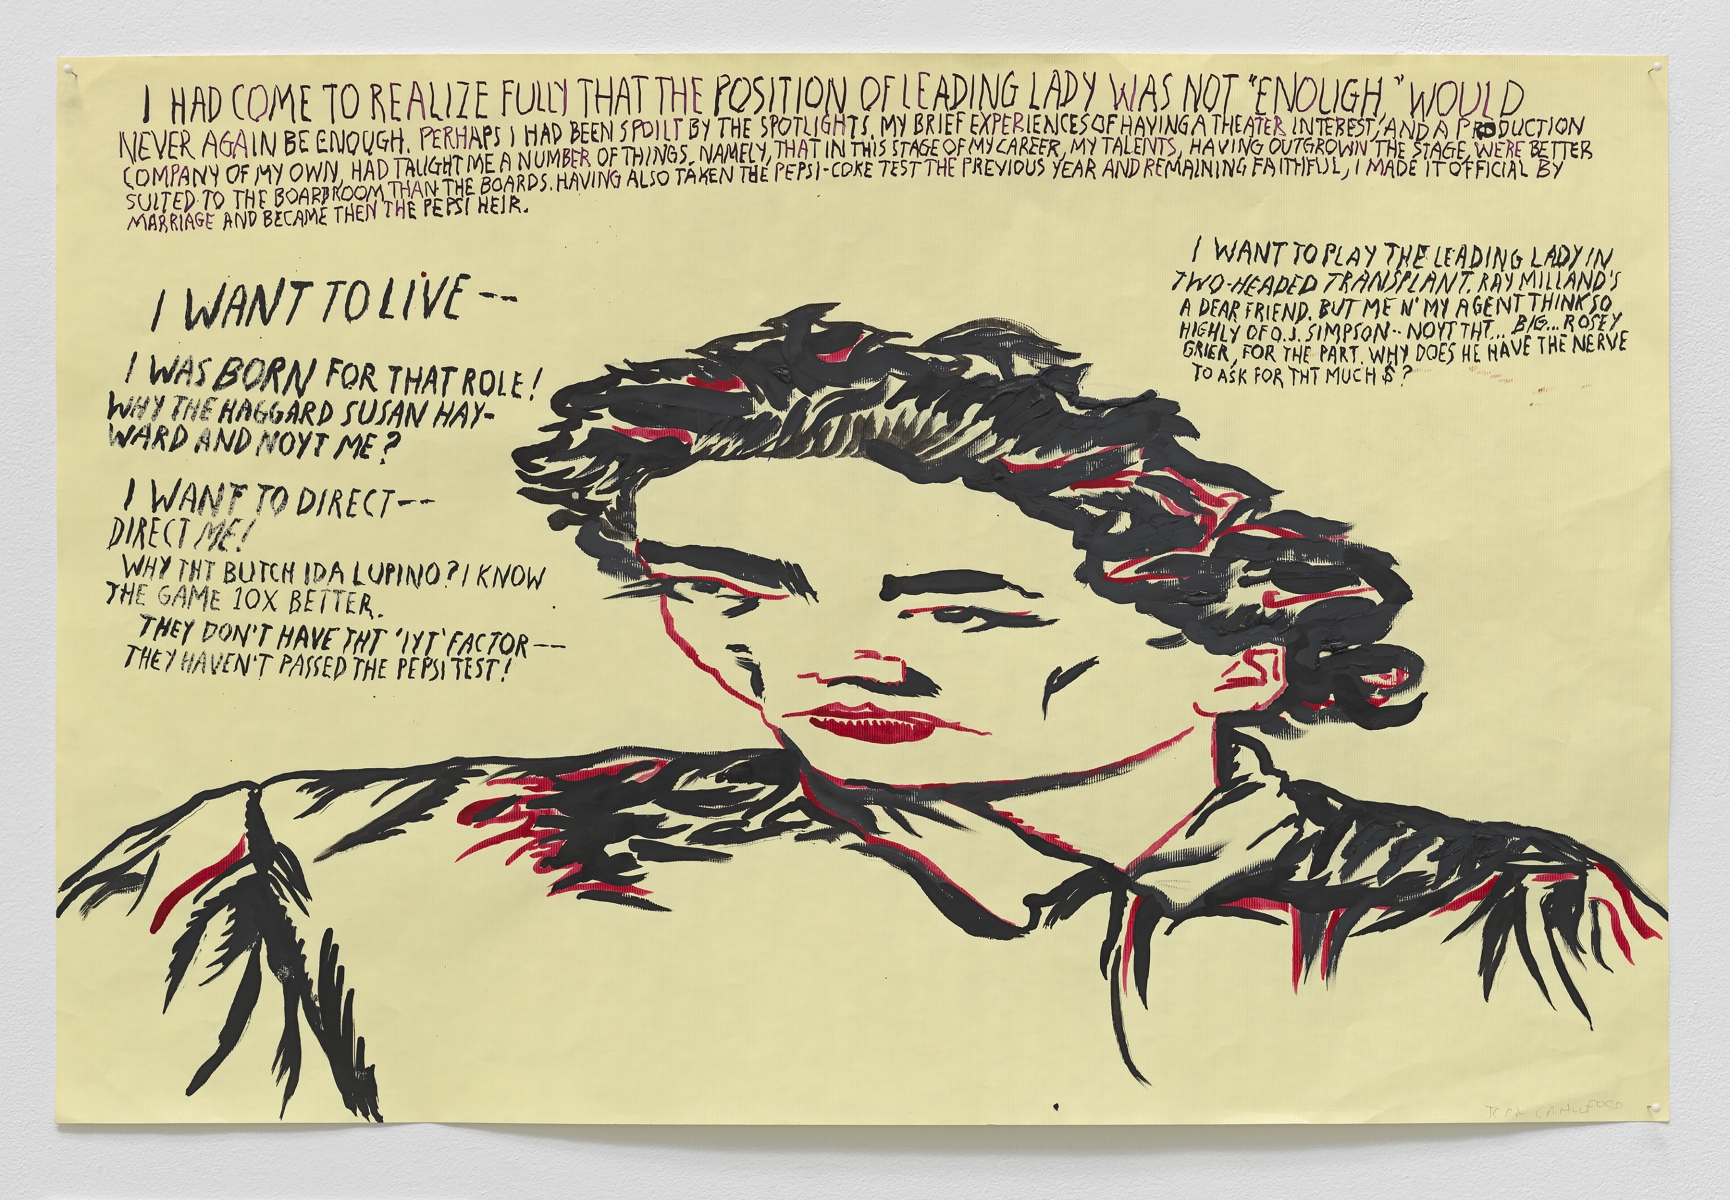 I HAD COME TO REALIZE FULLY THAT THE POSITION OF LEADING LADY WAS NOT "ENOUGH," WOULD
NEVER AGAIN BE ENOUGH. PERHAPS I HAD BEEN SPOILT BY THE SPOTLIGHTS. MY BRIEF EXPERIENCES OF HAVING A THEATER INTEREST, AND A PRODUCTION
COMPANY OF MY OWN, HAD TAUGHT ME A NUMBER OF THINGS. NAMELY, THAT IN THIS STAGE OF MY CAREER, MY TALENTS, HAVING OUTGROWN THE STAGE, WERE BETTER
SUITED TO THE BOARDROOM THAN THE BOARDS. HAVING ALSO TAKEN THE PEPSI-COKE TEST THE PREVIOUS YEAR AND REMAINING FAITHFUL, I MADE IT OFFICIAL BY
MARRIAGE AND BECAME THEN THE PEPSI HEIR.
I WANT TO LIVE--
I WAS BORN FOR THAT ROLE!
WHY THE HAGGARD SUSAN HAY-
WARD AND NOYT ME?
I WANT TO DIRECT--
DIRECT ME!
WHY THT BUTCH IDA LUPINO? I KNOW
THE GAME 10X BETTER.
THEY DON'T HAVE THT 'IYT' FACTOR--
THEY HAVEN'T PASSED THE PEPSI TEST!
I WANT TO PLAY THE LEADING LADY IN
TWO-HEADED TRANSPLANT. RAY MILLAND'S
A DEAR FRIEND. BUT ME N' MY AGENT THINK SO
HIGHLY OF O.J. SIMPSON-- NOYT THT... BIG... ROSEY
GRIER, FOR THE PART. WHY DOES HE HAVE THE NERVE
TO ASK FOR THT MUCH $?
JOAN CRAWFORD